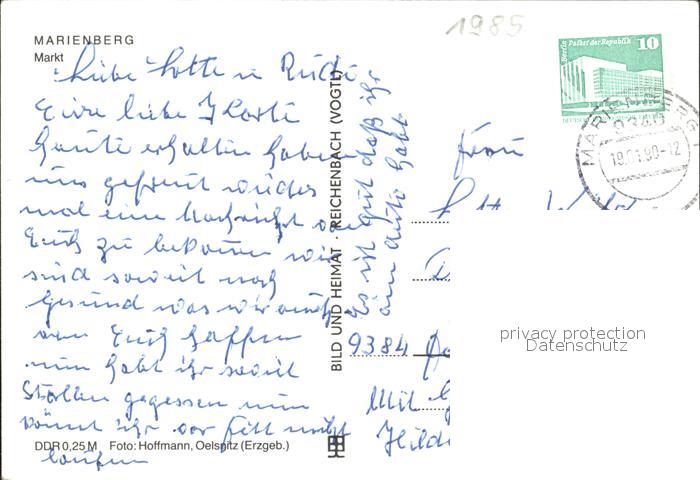 1985
MARIENBERG
Markt
Liebe Lotte u Rudi
Eure liebe Karte
heute erhalten haben
uns gefreut wieder
mal eine Nachricht von
Euch zu bekommen wir
sind soweit noch
gesund was wir auch
von Euch hoffen
nun habt ihr soviel
Stollen gegessen nun
könnt ihr vor fett nicht
laufen
Es ist gut daß ihr
ein Auto habt
DDR 0,25 M Foto: Hoffmann, Oelsnitz (Erzgeb.)
BILD UND HEIMAT · REICHENBACH (VOGTL)
Berlin Palast der Republik 10
MARIENBERG
9340
19.01.90-12
Frau
9384
Mit
Hild
privacy protection
Datenschutz